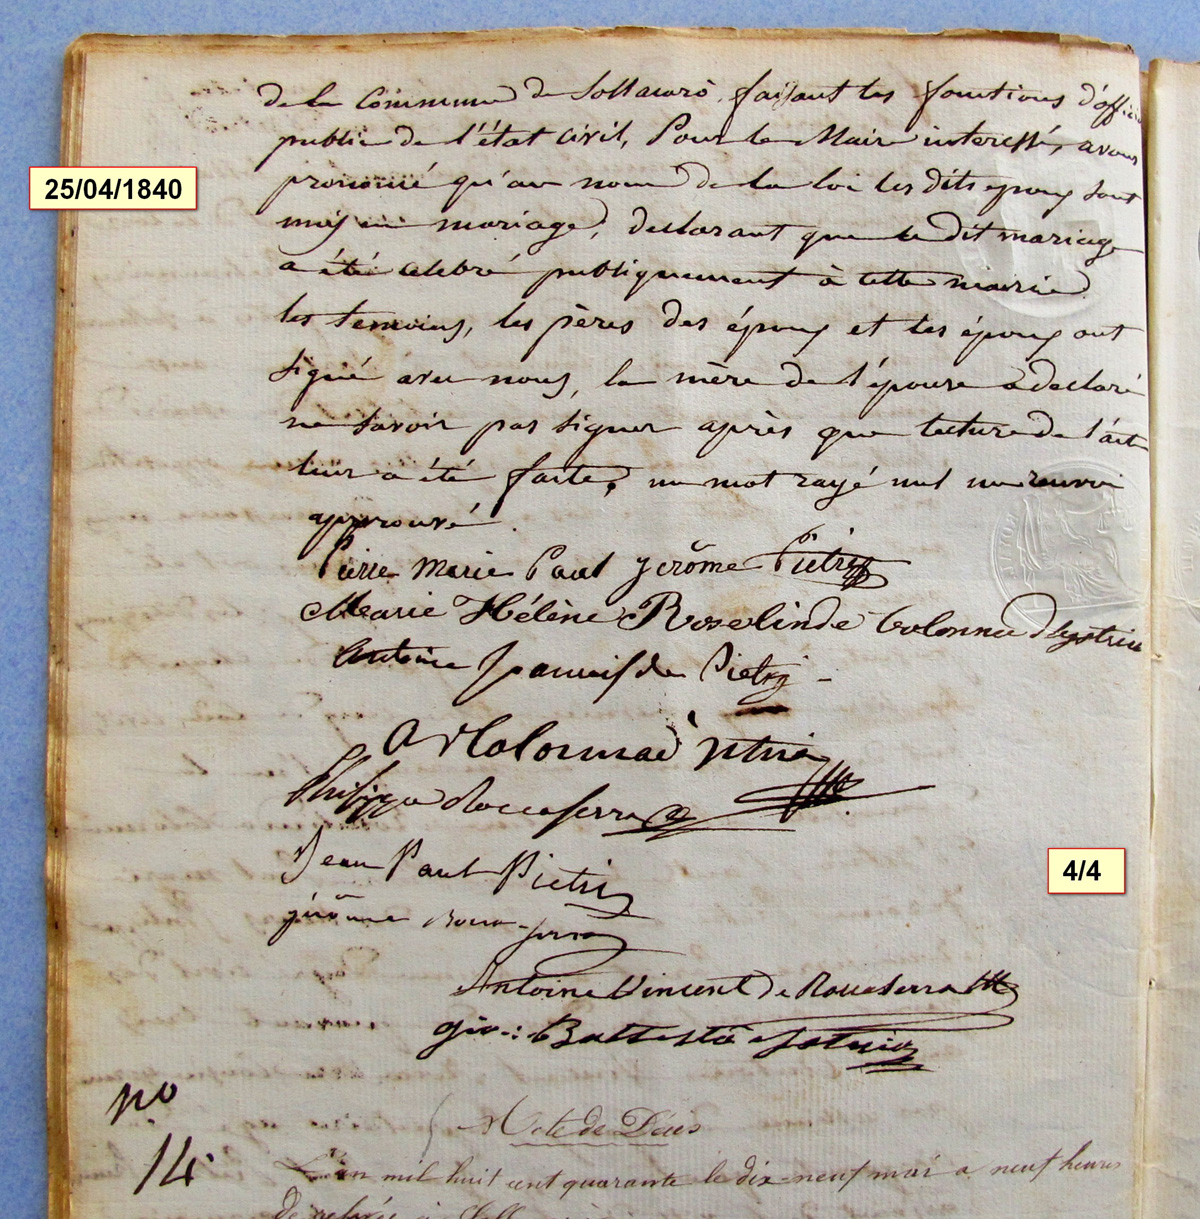 de la Commune de Sollacarò, faisant les fonctions d'officier
public de l'état civil, Pour le Maire interessé, avons
prononcé qu'au nom de la loi les dits epoux sont
unis en mariage, declarant que le dit mariage
a été celebré publiquement à cette mairie
les temoins, les pères des époux et les époux ont
signé avec nous, la mère de l'épouse a declaré
ne savoir pas signer après que lecture de l'acte
leur a été faite, un mot rayé nul un renvoi
approuvé.
25/04/1840
Pierre Marie Paul Jérôme Pietri
Marie Hélène Roselinde Colonna d'Istria
Antoine de Pietri
Colonna d'Istria
Philippe Roccaserra
Jean Paul Pietri
4/4
jérôme Rocca-serra
Antoine Vincent de Roccaserra
Gio: Battista
No
14
Acte de Décès
L'an mil huit cent quarante le dix-neuf mai a neuf heures